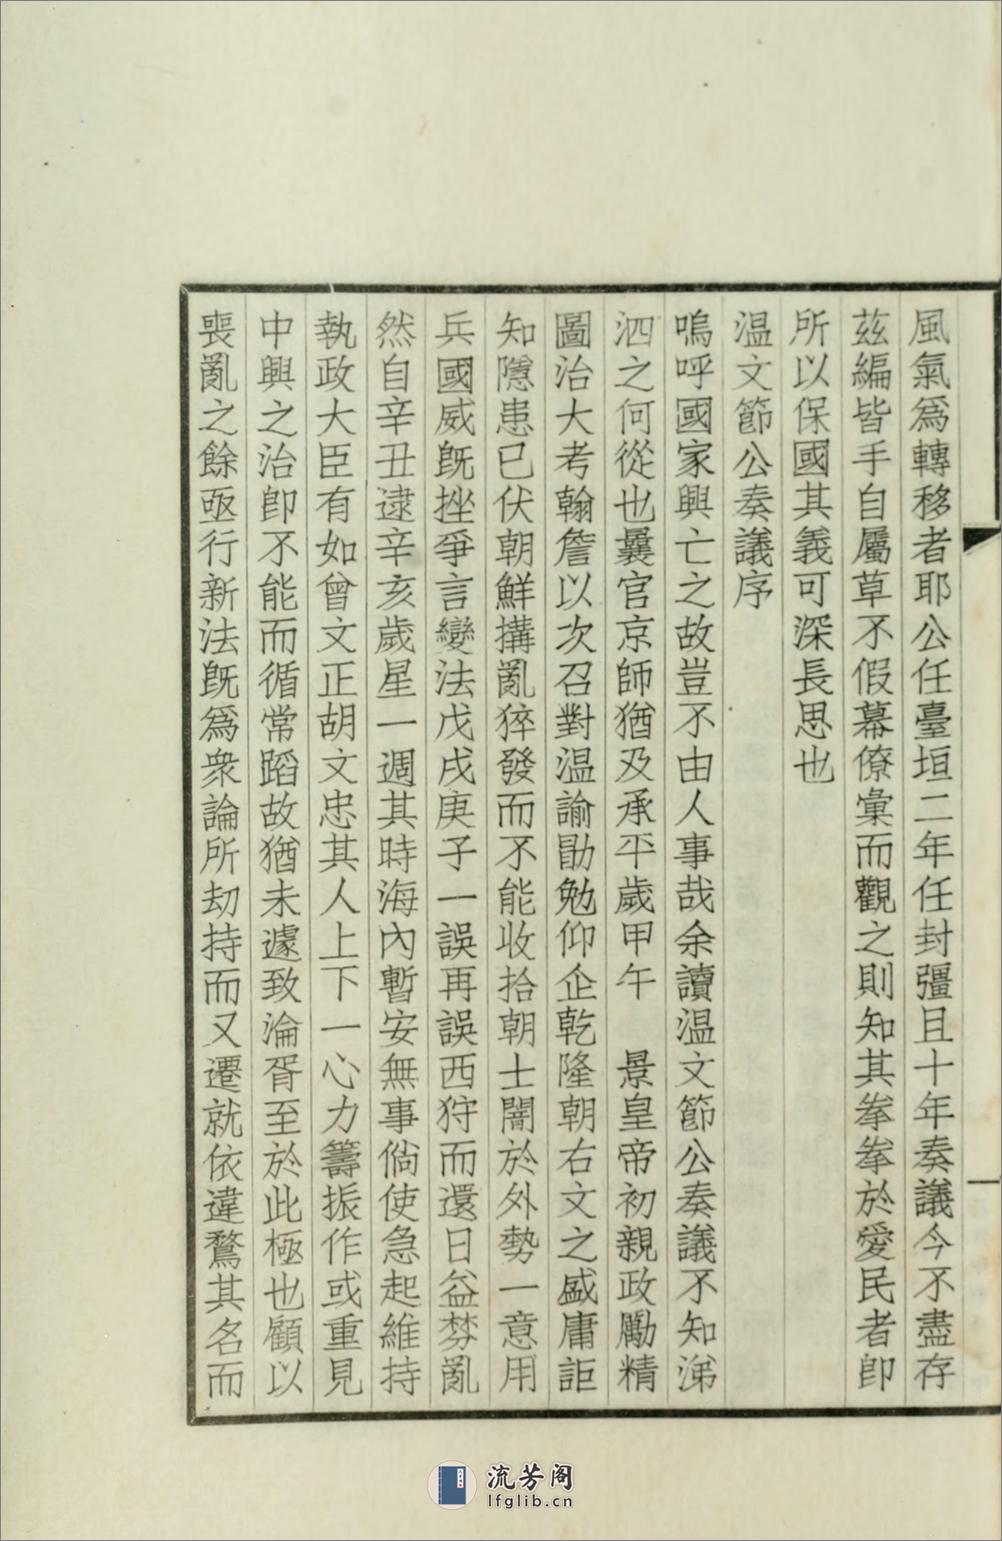 風氣爲轉移者耶公任臺垣二年任封疆且十年奏議今不盡存
茲編皆手自屬草不假幕僚彙而觀之則知其拳拳於愛民者卽
所以保國其義可深長思也
温文節公奏議序
嗚呼國家興亡之故豈不由人事哉余讀温文節公奏議不知涕
泗之何從也曩官京師猶及承平歲甲午　景皇帝初親政勵精
圖治大考翰詹以次召對温諭勖勉仰企乾隆朝右文之盛庸詎
知隱患已伏朝鮮搆亂猝發而不能收拾朝士闇於外勢一意用
兵國威旣挫爭言變法戊戌庚子一誤再誤西狩而還日益棼亂
然自辛丑逮辛亥歲星一週其時海內暫安無事倘使急起維持
執政大臣有如曾文正胡文忠其人上下一心力籌振作或重見
中興之治卽不能而循常蹈故猶未遽致淪胥至於此極也顧以
喪亂之餘亟行新法旣爲衆論所劫持而又遷就依違鶩其名而
一
流芳阁
lfglib.cn